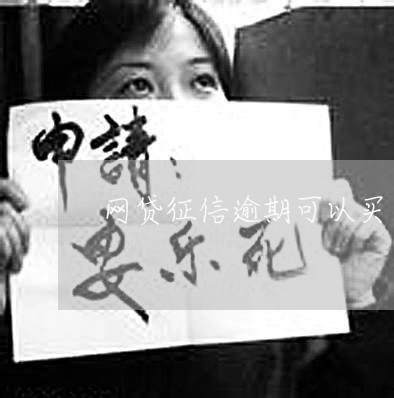 申請：
网贷征信逾期可以买
安乐死